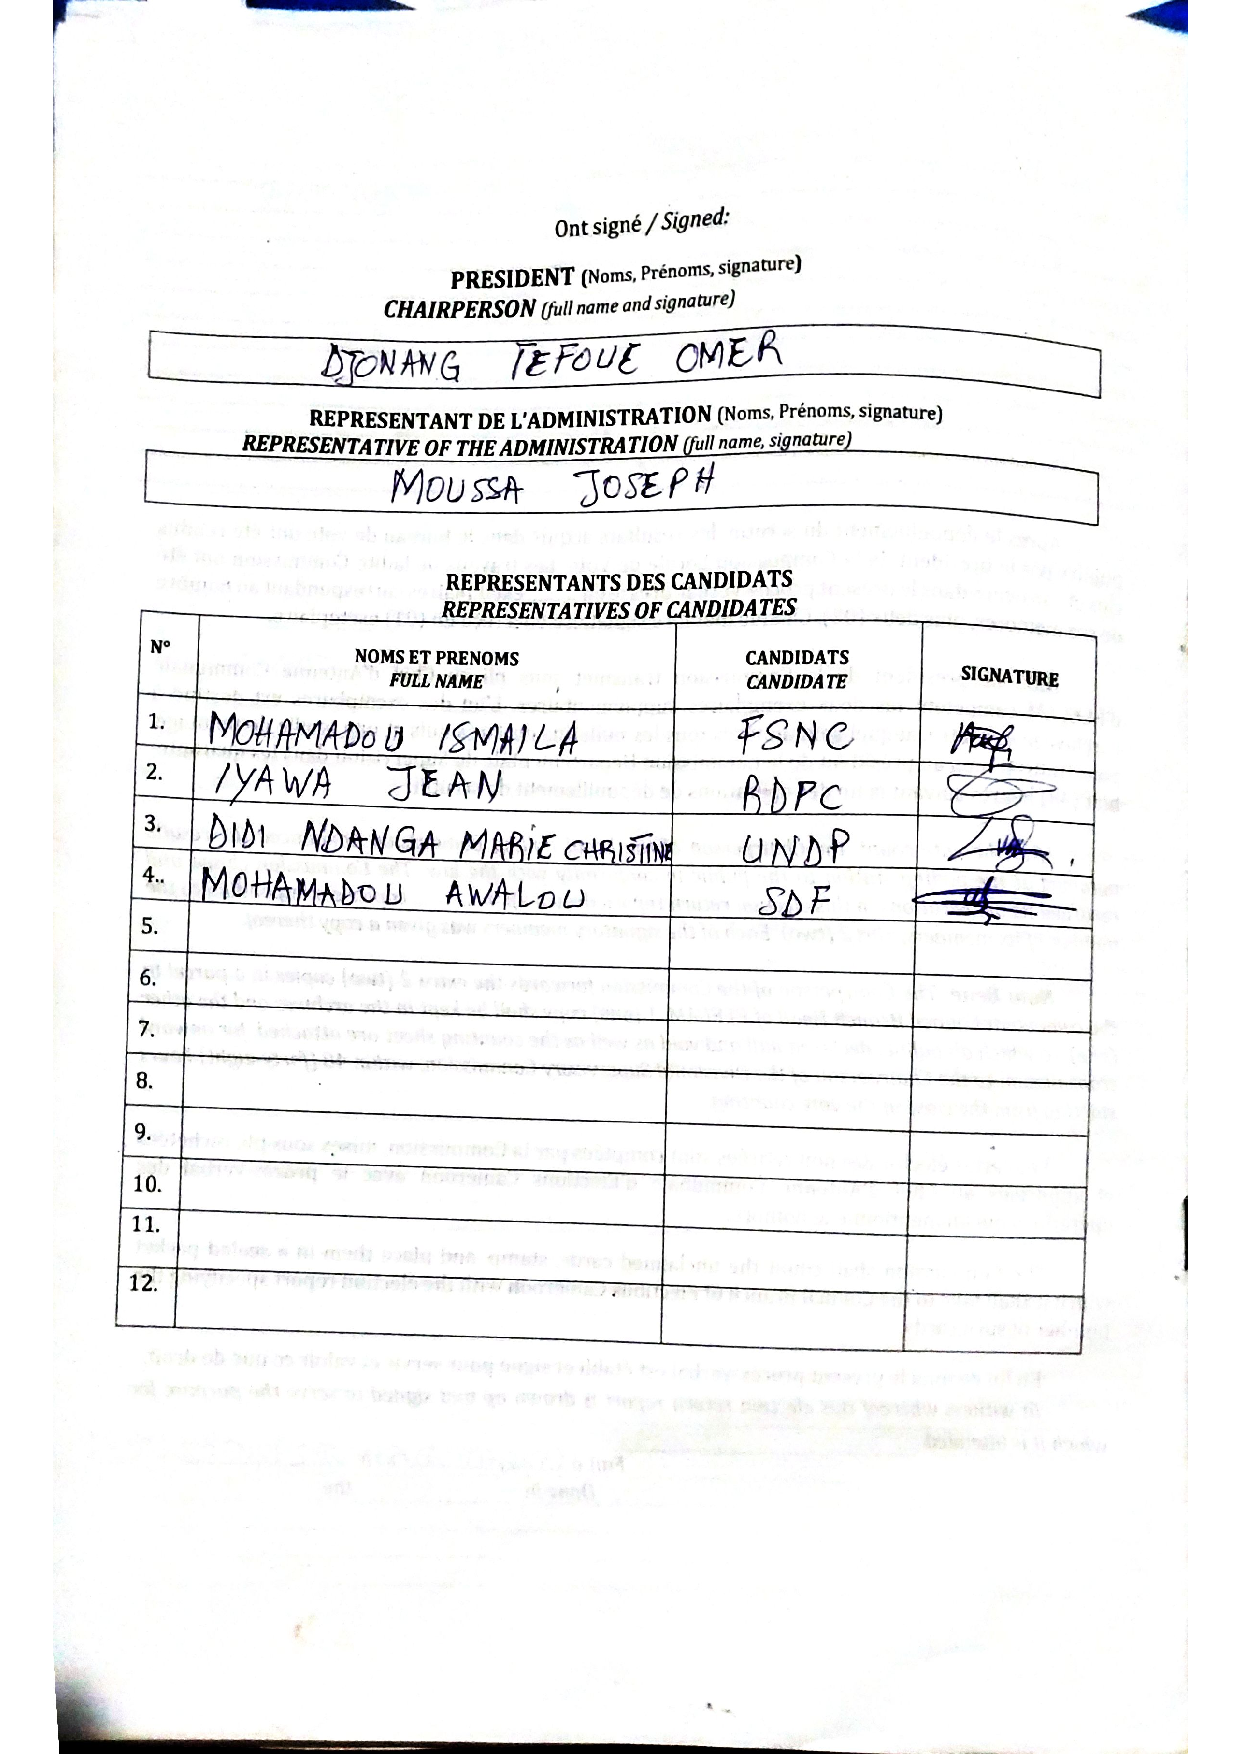 Ont signé / Signed:
PRESIDENT (Noms, Prénoms, signature)
CHAIRPERSON (full name and signature)
DJONANG TEFOUE OMER
REPRESENTANT DE L'ADMINISTRATION (Noms, Prénoms, signature)
REPRESENTATIVE OF THE ADMINISTRATION (full name, signature)
MOUSSA JOSEPH
REPRESENTANTS DES CANDIDATS
REPRESENTATIVES OF CANDIDATES
N° NOMS ET PRENOMS CANDIDATS SIGNATURE
FULL NAME CANDIDATE
1. MOHAMADOU ISMAILA FSNC
2. IYAWA JEAN RDPC
3. DIDI NDANGA MARIE CHRISTINE UNDP
4.. MOHAMADOU AWALOU SDF
5.
6.
7.
8.
9.
10.
11.
12.